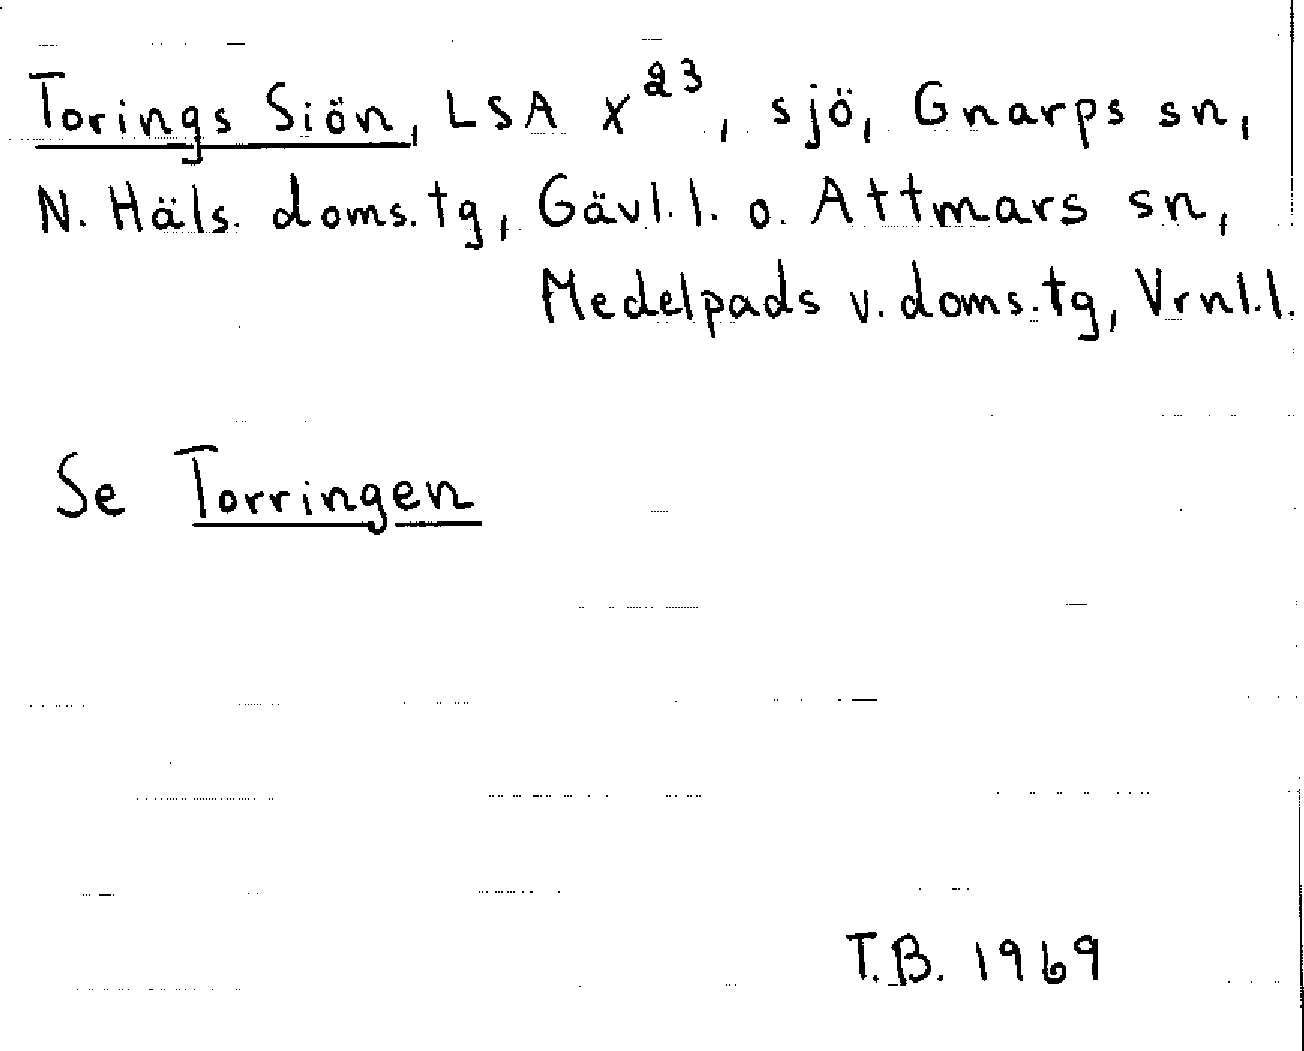 Torings Siön, LSA X²³, sjö, Gnarps sn,
N. Häls. doms.tg, Gävl.l. o. Attmars sn,
Medelpads v. doms.tg, Vrnl.l.
Se Torringen
T.B. 1969